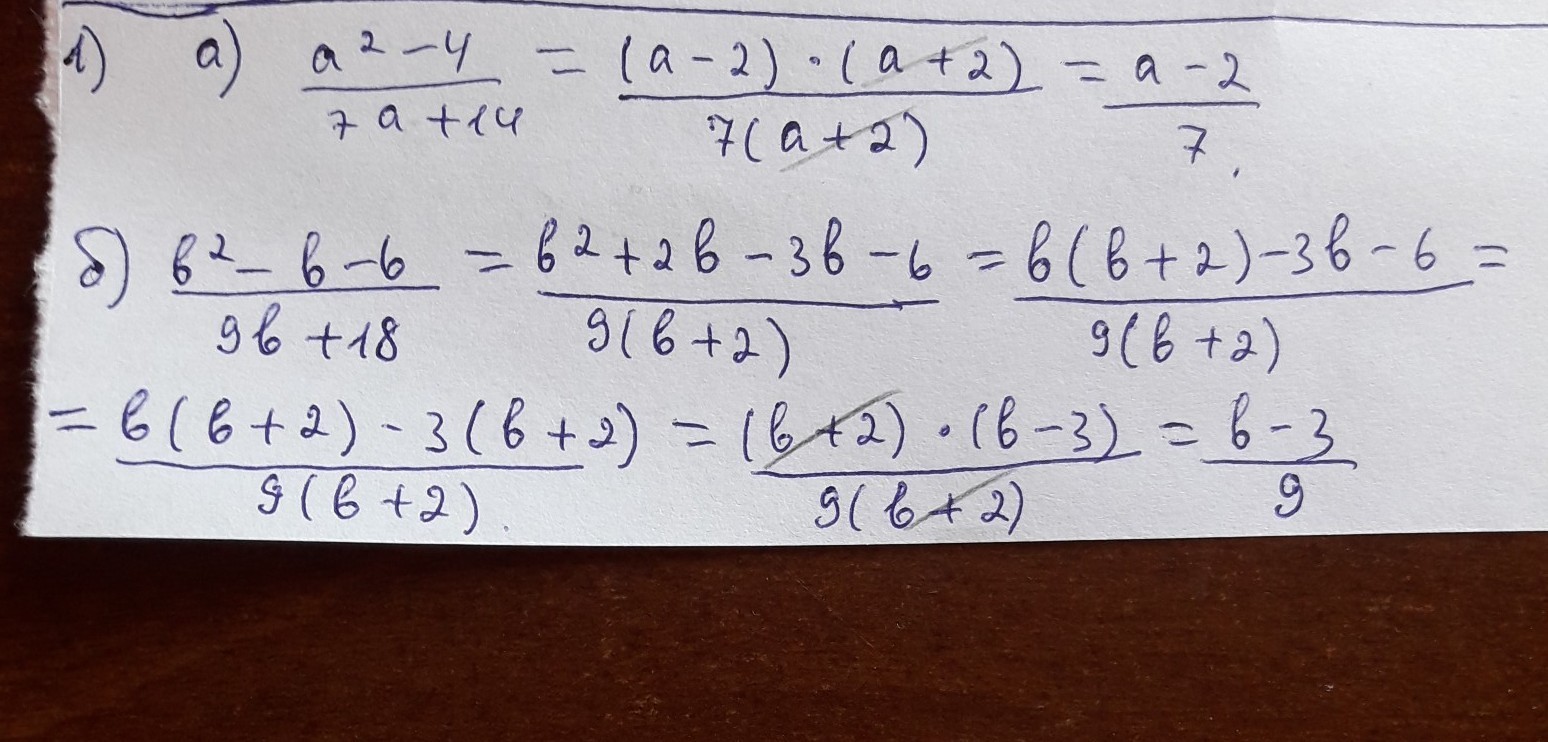 1) а) (a² - 4)/(7a + 14) = ((a - 2) · (a + 2))/(7(a + 2)) = (a - 2)/7.
б) (b² - b - 6)/(9b + 18) = (b² + 2b - 3b - 6)/(9(b + 2)) = (b(b + 2) - 3b - 6)/(9(b + 2)) =
= (b(b + 2) - 3(b + 2))/(9(b + 2)). = ((b + 2) · (b - 3))/(9(b + 2)) = (b - 3)/9